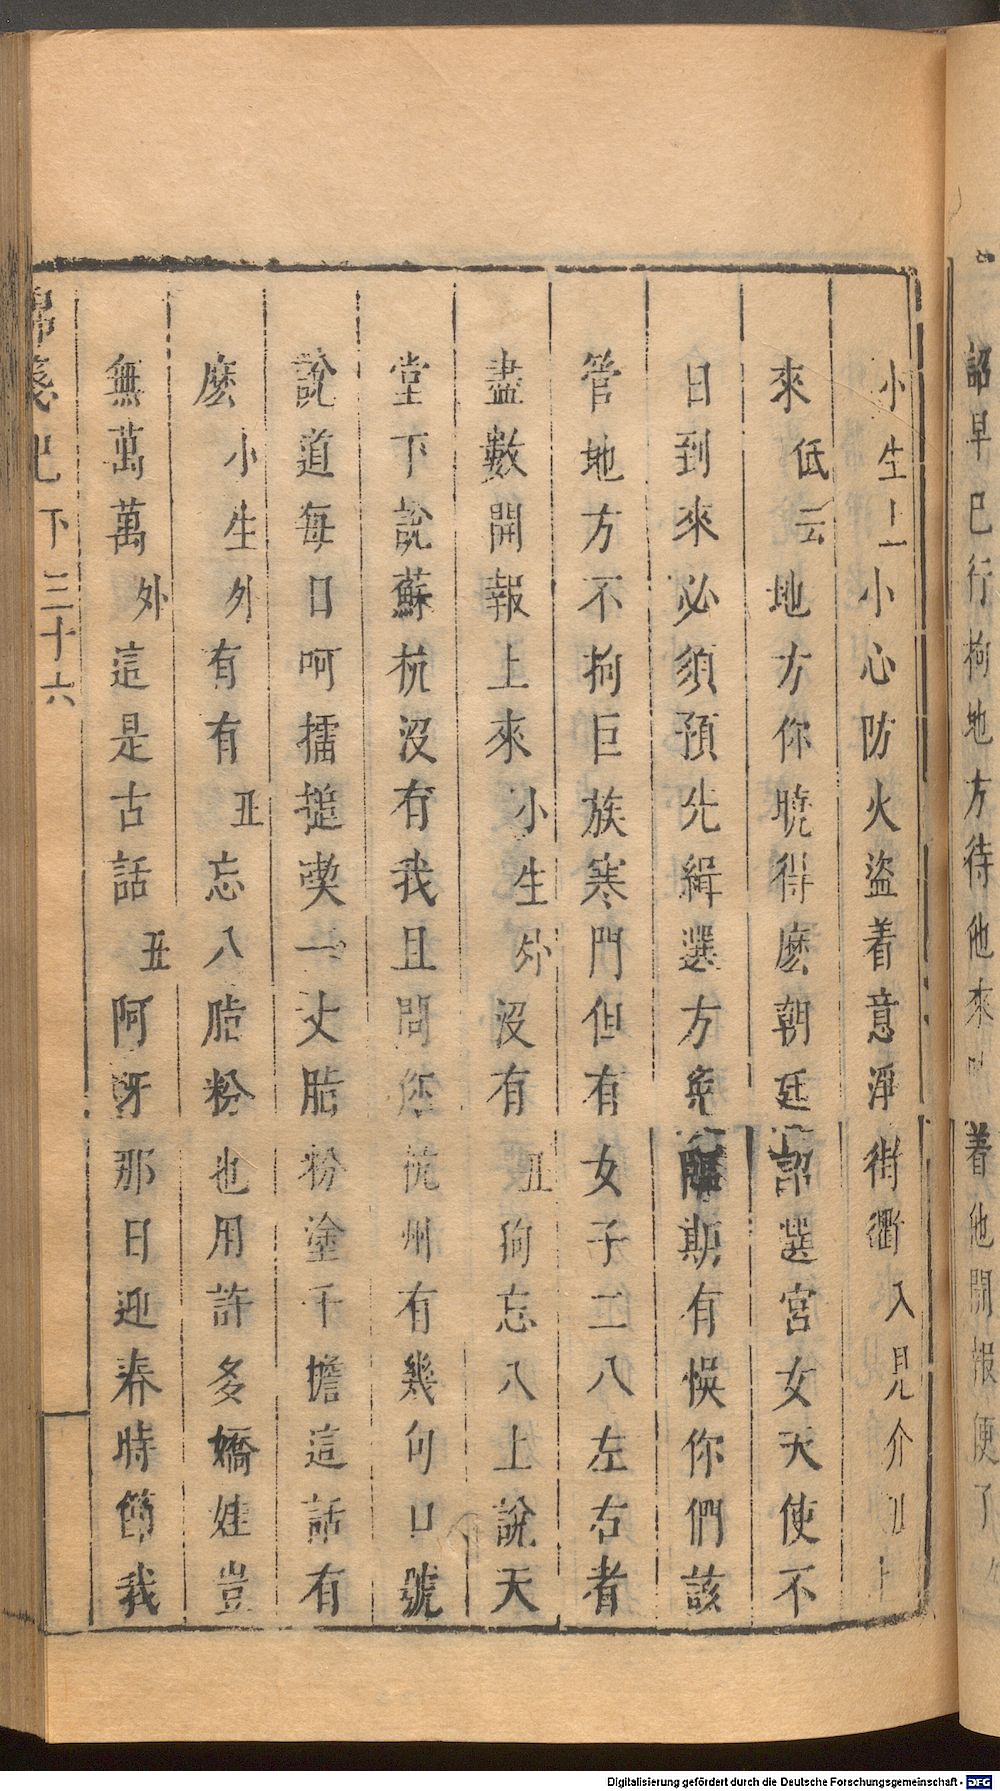 詔早已行拘地方待他來 着他開報便了
小生上小心防火盜着意淨街衢入見介丑
來低云地方你曉得麽朝廷詔選宮女天使不
日到來必須預先緝選方免臨期有悞你們該
管地方不拘巨族寒門但有女子二八左右者
盡數開報上來小生外没有丑狗忘八上說天
堂下說蘇杭没有我且問您杭州有幾句口號
說道每日呵擂搥喫一丈脂粉塗千擔這話有
麽小生外有有丑忘八脂粉也用許多嬌娃豈
無萬萬外這是古話丑阿呀那日迎春時節我
箋記 下 三十六
Digitalisierung gefördert durch die Deutsche Forschungsgemeinschaft - DFG